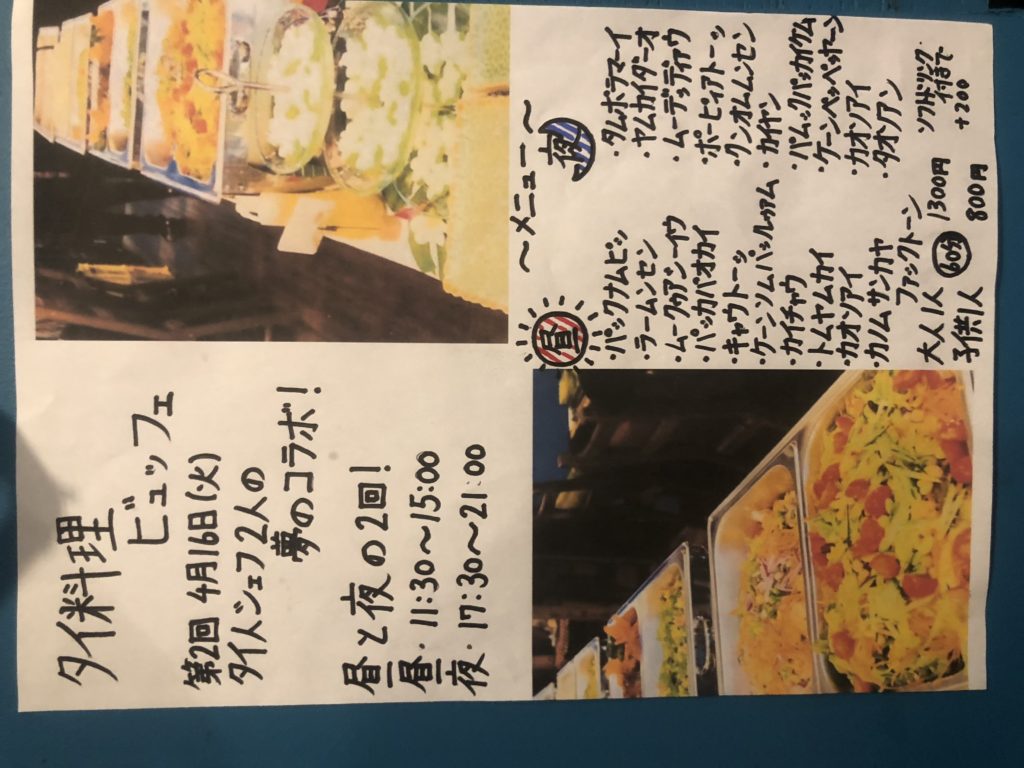 タイ料理
ビュッフェ
第2回 4月16日(火)
タイ人シェフ2人の
夢のコラボ!
昼と夜の2回!
昼・11:30〜15:00
夜・17:30〜21:00
〜メニュー〜
昼
・パックナムピッ
・ラームンセン
・ムークゥアシーイウ
・パッカパオカイ
・キャウトーッ
・ケーンソムパッルゥアム
・カイチャウ
・トムヤムカイ
・カオソアイ
・カノムサンカヤ
ファックトーン
夜
・タムポテマーイ
・ヤムカイダーオ
・ムーデッディアウ
・ポーピィアトーッ
・クンオムムンセン
・カイヤン
・パムックパッカイケム
・ケーンペッペッヤーン
・カオソアイ
・タオソアン
大人1人 60分 1300円
子供1人 800円
ソフトドリンク
付きで
+200